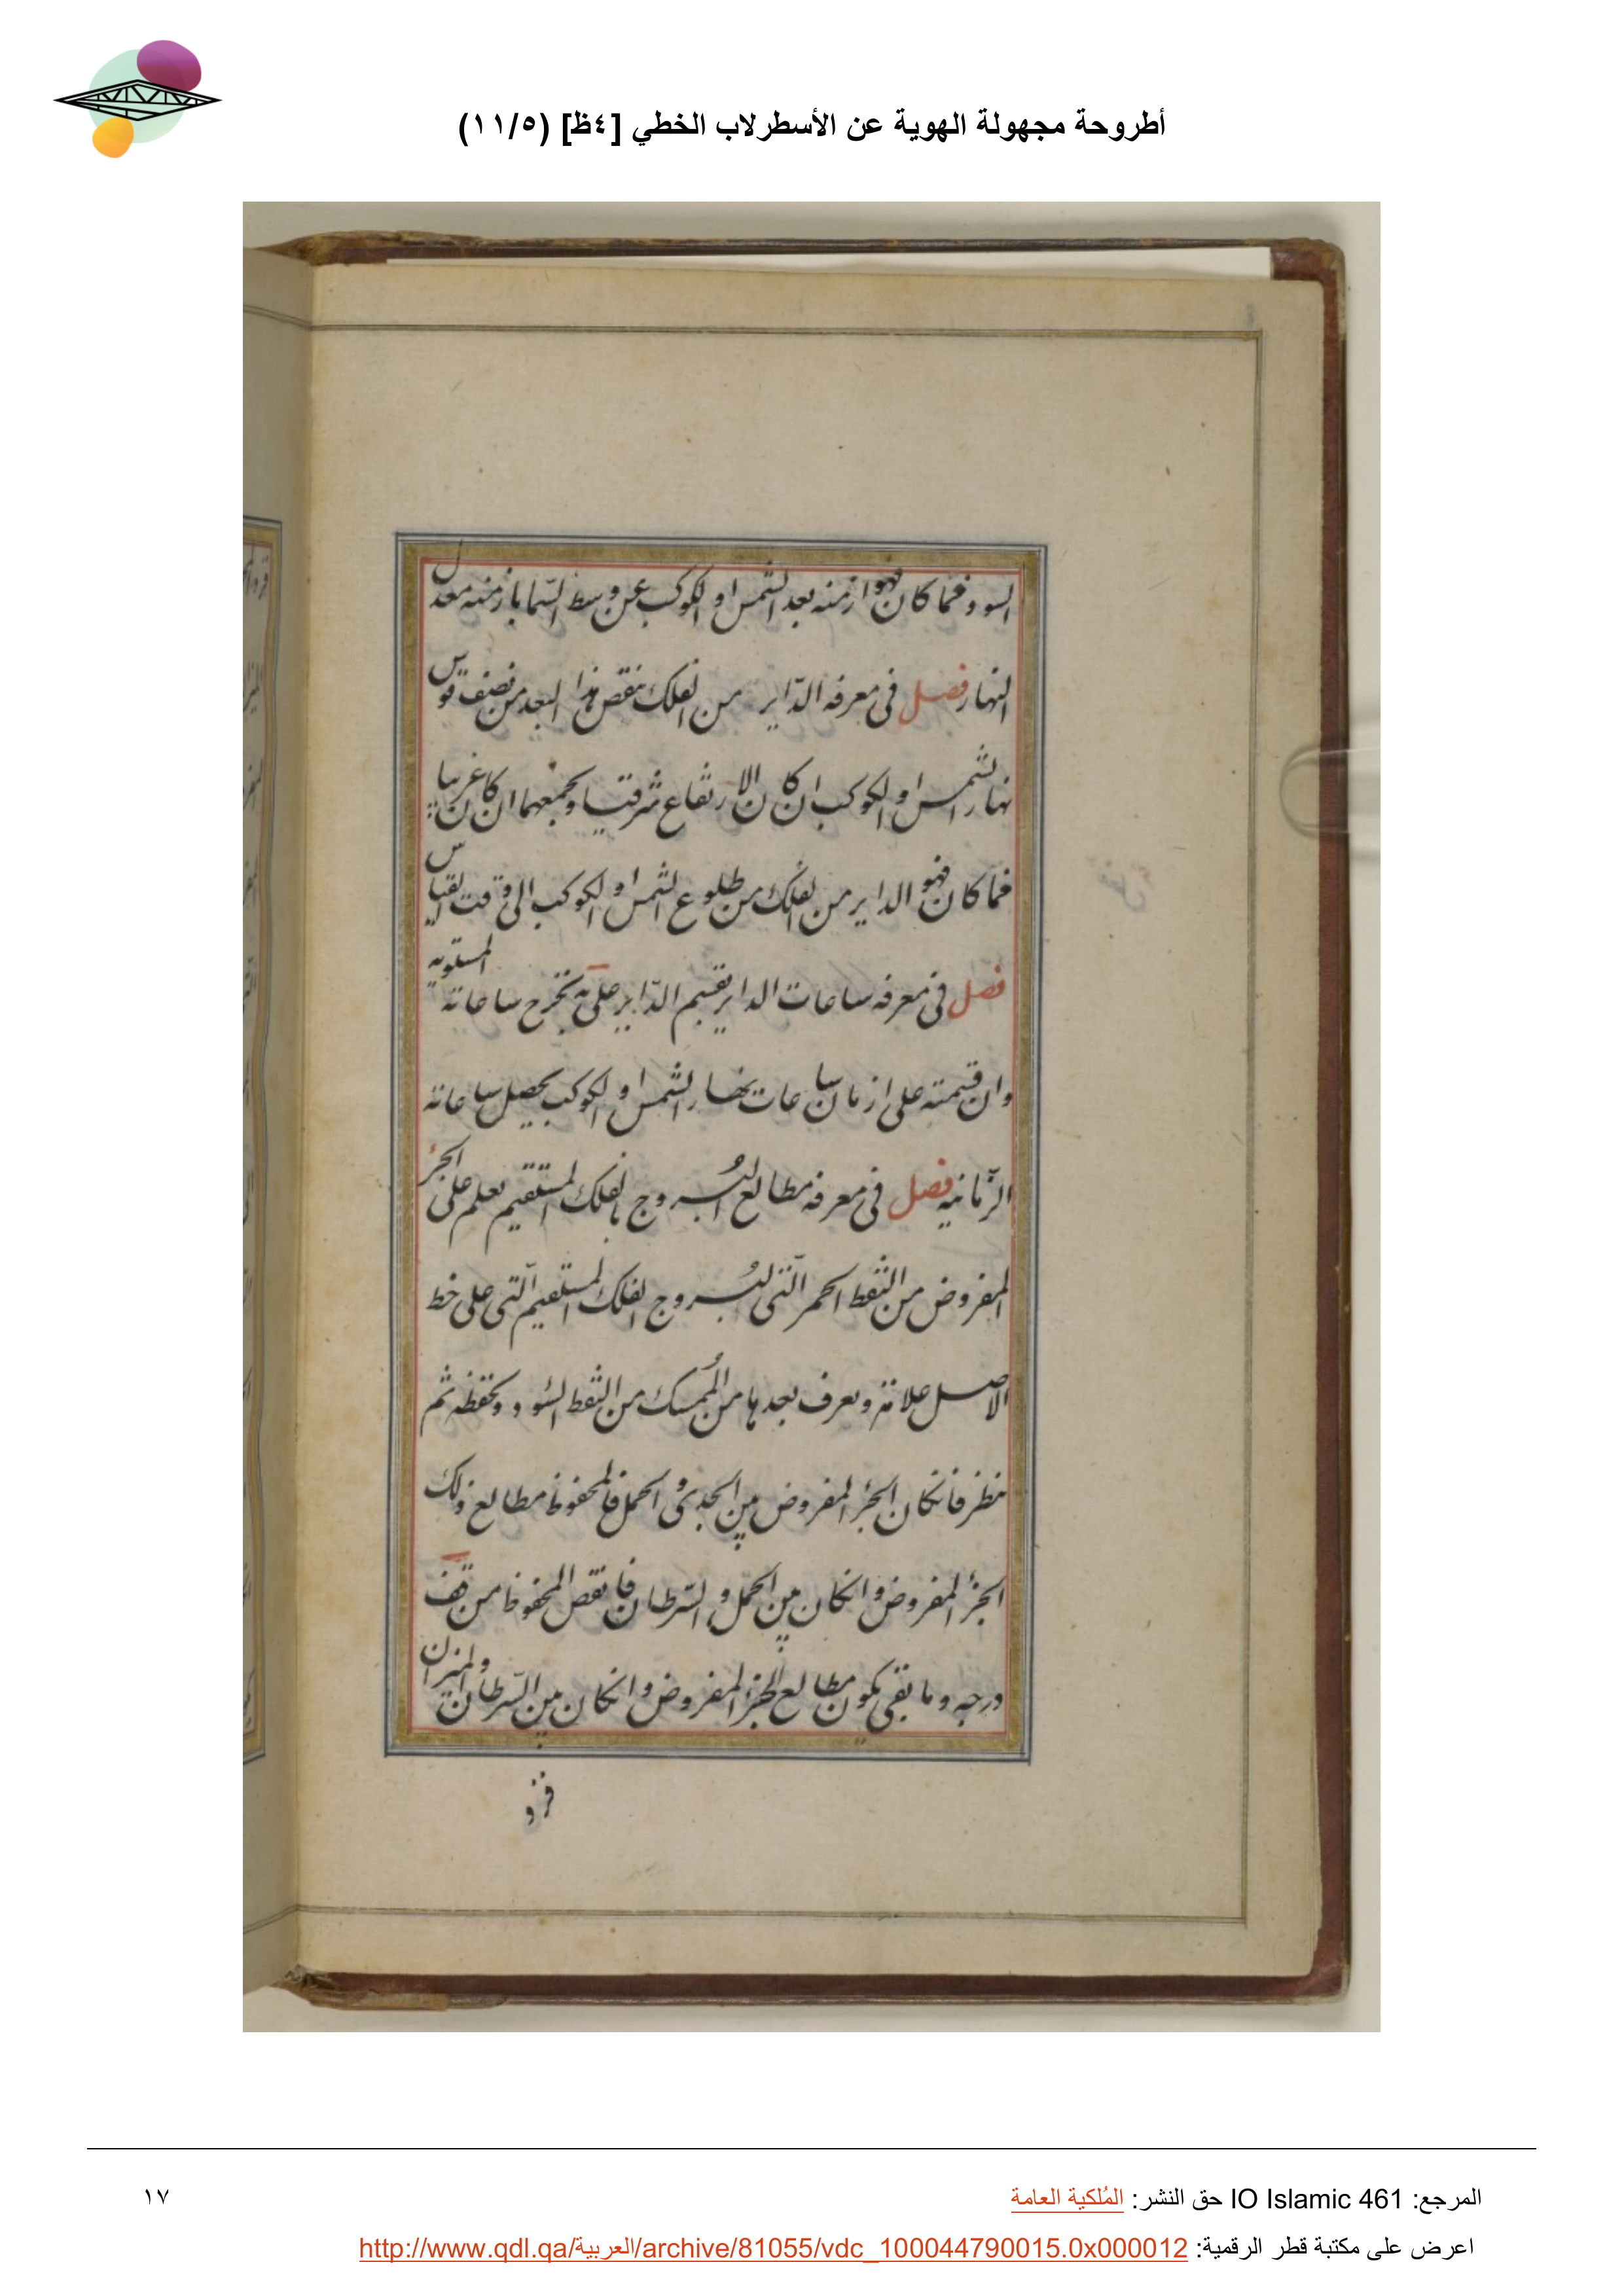 أطروحة مجهولة الهوية عن الأسطرلاب الخطي [٤ظ] (١١/٥)
السود فما كان فهو ازمنه بعد الشمس او الكوكب عن وسط السما بازمنه معدل
النهار فصل فى معرفه الدّاير من الفلك ينقص هذا البعد من نصف قوس
نهار الشمس او الكوكب ان كان الارتفاع شرقيا ويجمعهما ان كان غربيا
فما كان فهو الداير من الفلك من طلوع الشمس او الكوكب الى وقت القياس
فصل فى معرفه ساعات الداير يقسم الدّاير على يه يخرج ساعاته المستويه
وان قسمته على ازمان ساعات نهار الشمس او الكوكب يحصل ساعاته
الزّمانيه فصل فى معرفه مطالع البُروج بالفلك المستقيم يعلم على الجزء
المفروض من النقط الحمر الّتى لبُروج الفلك المستقيم الّتى على خط
الاصل علامة ويعرف بعدها من المُمسك من النقط السُود ويحفظه ثم
ينظر فانكان الجزء المفروض بين الجدى و الحمل فالمحفوظ مطالع ذلك
الجزء المفروض وانكان بين الحمل و السّرطان فانقص المحفوظ من قف
درجه وما بقى يكون مطالع الجزء المفروض وانكان بين السّرطان والميزان
فزد
المرجع: IO Islamic 461 حق النشر: المُلكية العامة
١٧
اعرض على مكتبة قطر الرقمية: http://www.qdl.qa/العربية/archive/81055/vdc_100044790015.0x000012